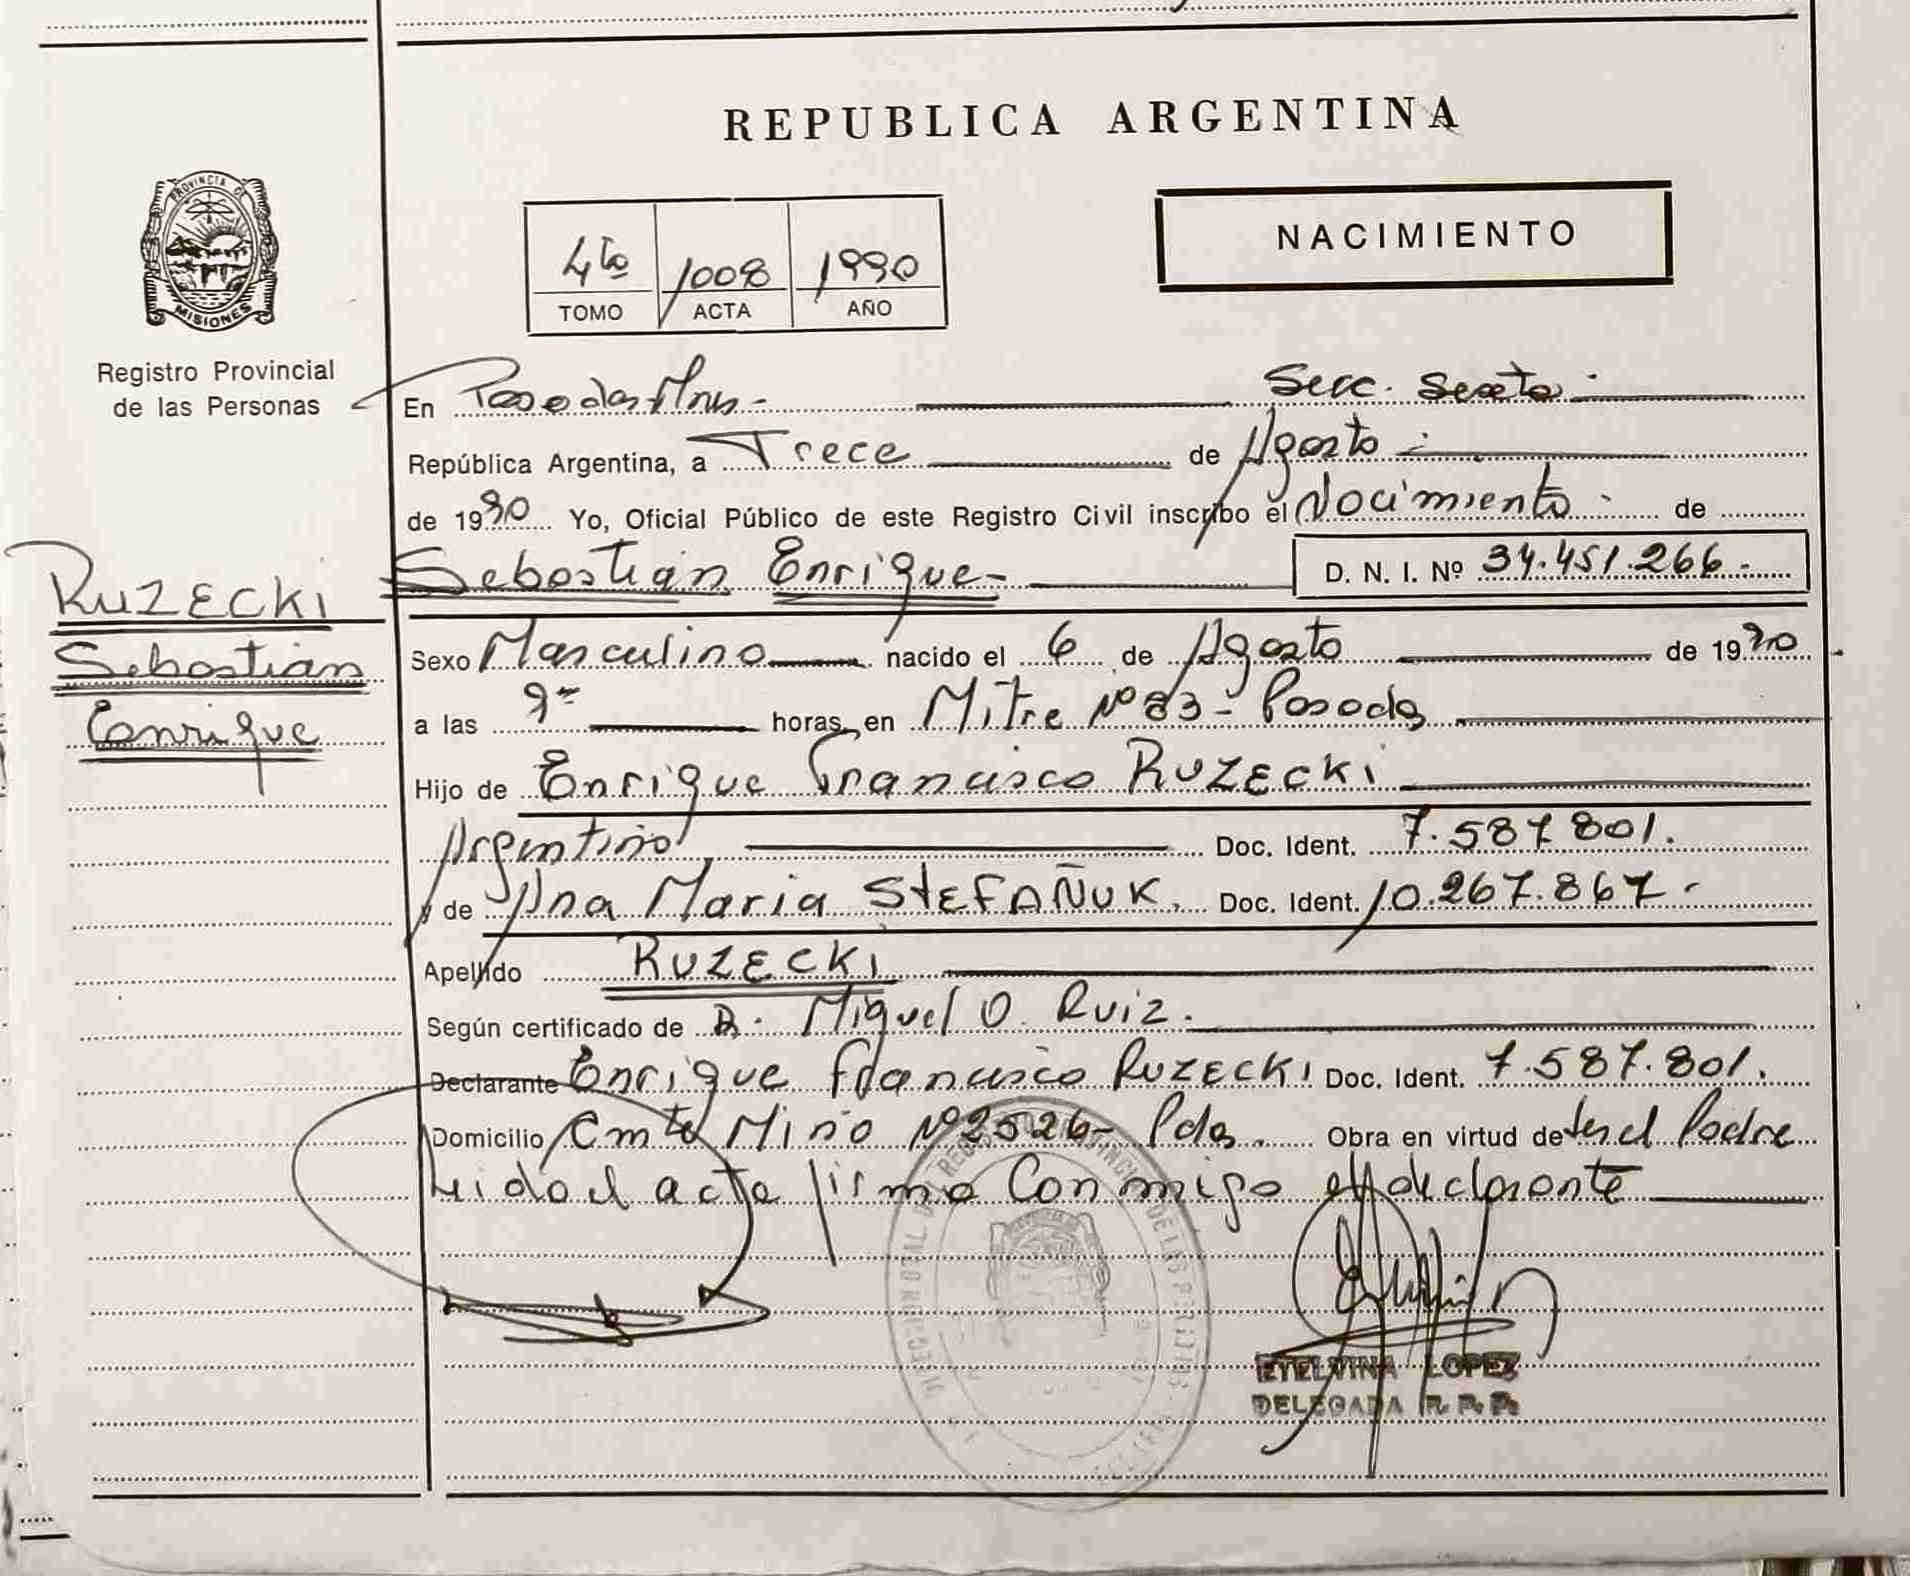 REPUBLICA ARGENTINA
PROVINCIA DE
MISIONES
Registro Provincial
de las Personas
NACIMIENTO
4to 1008 1990
TOMO ACTA AÑO
En Posadas Mnes.- Secc. Sexta.-
República Argentina, a Trece de Agosto.-
de 1990 Yo, Oficial Público de este Registro Civil inscribo el Nacimiento.- de
Sebastián Enrique.- D. N. I. Nº 34.451.266.-
RUZECKI
Sebastián
Enrique
Sexo Masculino nacido el 6 de Agosto de 1990
a las 9 horas, en Mitre Nº 83 - Posadas
Hijo de Enrique Francisco RUZECKI
Argentino Doc. Ident. 7.587.801.
y de Ana Maria STEFAÑUK. Doc. Ident. 10.267.867.-
Apellido RUZECKI
Según certificado de Dr. Miguel O. Ruiz.
Declarante Enrique Francisco RUZECKI Doc. Ident. 7.587.801.
Domicilio Cmte Miño Nº 2526- Pdas. Obra en virtud de ser el Padre
Leido el acta firma Conmigo el declarante
ETELVINA LOPEZ
DELEGADA R. P. P.